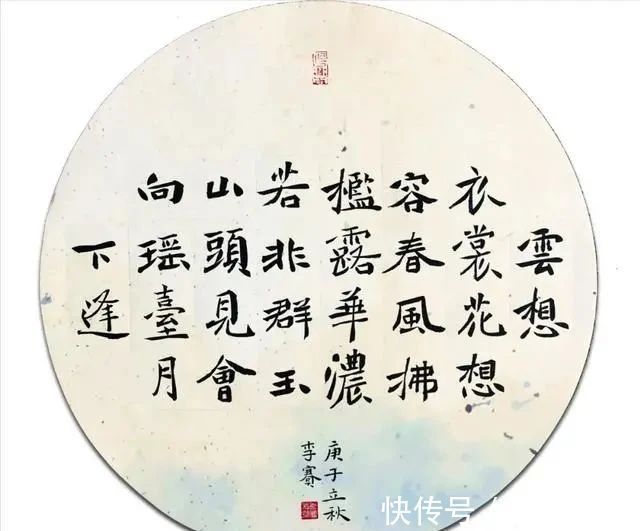 雲想
衣裳花想
容春風拂
檻露華濃
若非群玉
山頭見會
向瑶臺月
下逢
庚子立秋
李賽
快传号